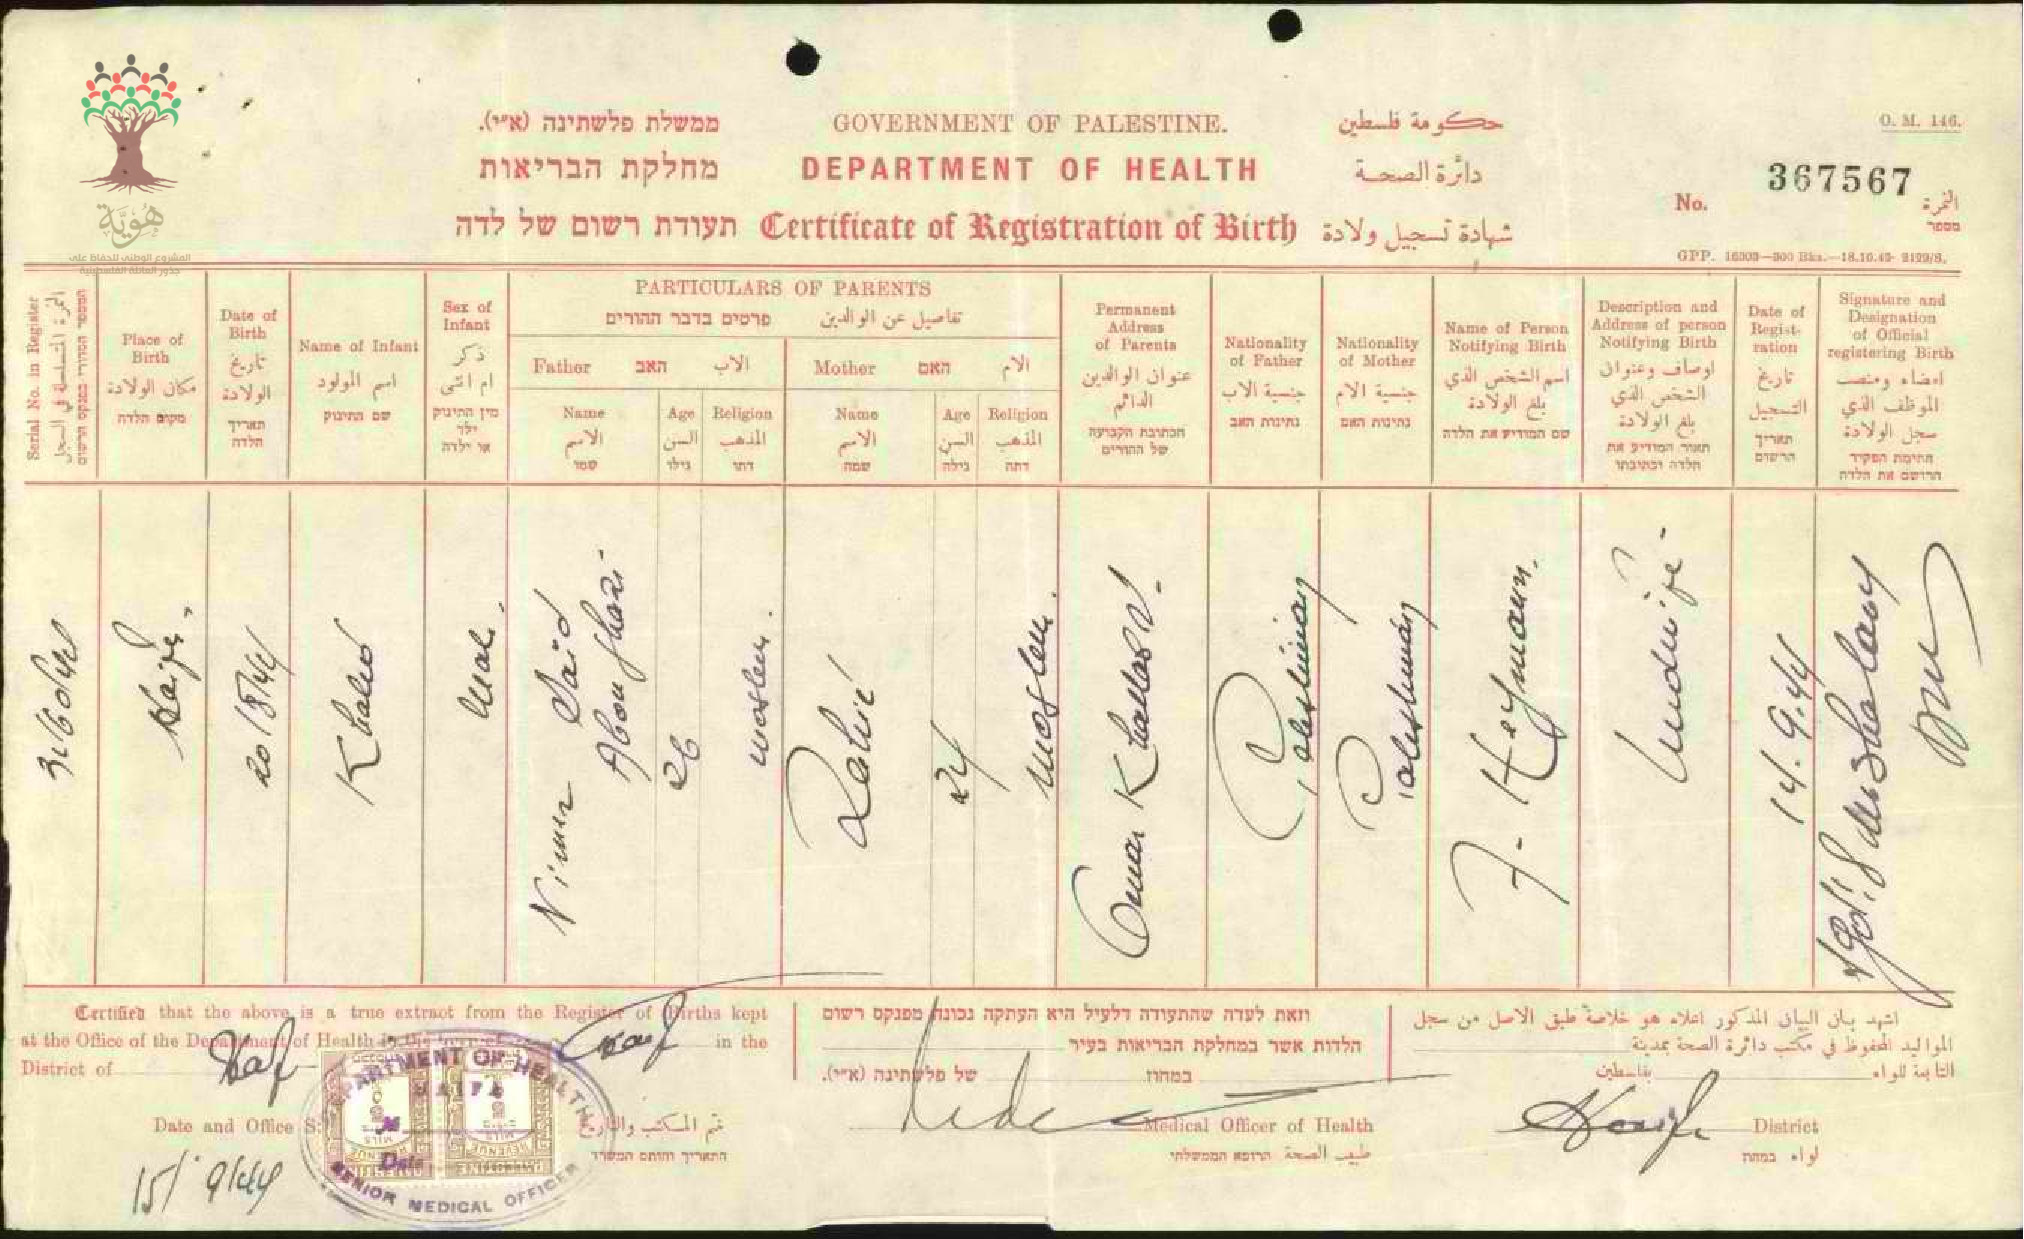 هُويَّة
المشروع الوطني للحفاظ على
جذور العائلة الفلسطينية
ממשלת פלשתינה (א״י). GOVERNMENT OF PALESTINE. حكومة فلسطين
O. M. 146.
מחלקת הבריאות DEPARTMENT OF HEALTH دائرة الصحة
No. 367567 النمرة
מספר
תעודת רשום של לדה Certificate of Registration of Birth شهادة تسجيل ولادة
GPP. 16303—300 Bks.—18.10.43- 2129/S.
Serial No. in Register
النمرة المتسلسلة في السجل
המספר הסדורי בפנקס הרשום
Place of
Birth
مكان الولادة
מקום הלדה
Date of
Birth
تاريخ
الولادة
תאריך
הלדה
Name of Infant
اسم المولود
שם התינוק
Sex of
Infant
ذكر
ام انثى
מין התינוק
ילד
או ילדה
PARTICULARS OF PARENTS
פרטים בדבר ההורים تفاصيل عن الوالدين
Father האב الاب
Name
الاسم
שמו
Age
السن
גילו
Religion
المذهب
דתו
Mother האם الام
Name
الاسم
שמה
Age
السن
גילה
Religion
المذهب
דתה
Permanent
Address
of Parents
عنوان الوالدين
الدائم
הכתובת הקבועה
של ההורים
Nationality
of Father
جنسية الاب
נתינות האב
Nationality
of Mother
جنسية الام
נתינות האם
Name of Person
Notifying Birth
اسم الشخص الذي
بلغ الولادة
שם המודיע את הלדה
Description and
Address of person
Notifying Birth
اوصاف وعنوان
الشخص الذي
بلغ الولادة
תאור המודיע את
הלדה וכתובתו
Date of
Regist-
ration
تاريخ
التسجيل
תאריך
הרשום
Signature and
Designation
of Official
registering Birth
امضاء ومنصب
الموظف الذي
سجل الولادة
חתימת הפקיד
הרושם את הלדה
Haifa.
20/8/44
Khaled
Male.
Nimer Said
Abou Ghazi
26
Moslem.
Rabié
24
Moslem.
Omar Khattab St.
Palestinian
Palestinian
F. Heymann.
Midwife -
14.9.44
Certified that the above is a true extract from the Register of Births kept
at the Office of the Department of Health in the town of Haifa in the
District of Haifa
Date and Office S
ختم المكتب والتاريخ
התאריך וחותם המשרד
15/9/44
DEPARTMENT OF HEALTH
HAIFA
No
Date
SENIOR MEDICAL OFFICER
MILS
MILS
REVENUE
REVENUE
וזאת לעדה שהתעודה דלעיל היא העתקה נכונה מפנקס רשום
הלדות אשר במחלקת הבריאות בעיר
במחוז של פלשתינה (א״י).
Medical Officer of Health
طبيب الصحة הרופא הממשלתי
اشهد بان البيان المذكور اعلاه هو خلاصة طبق الاصل من سجل
المواليد المحفوظ في مكتب دائرة الصحة بمدينة
التابعة للواء بفلسطين
Haifa District
لواء במחוז